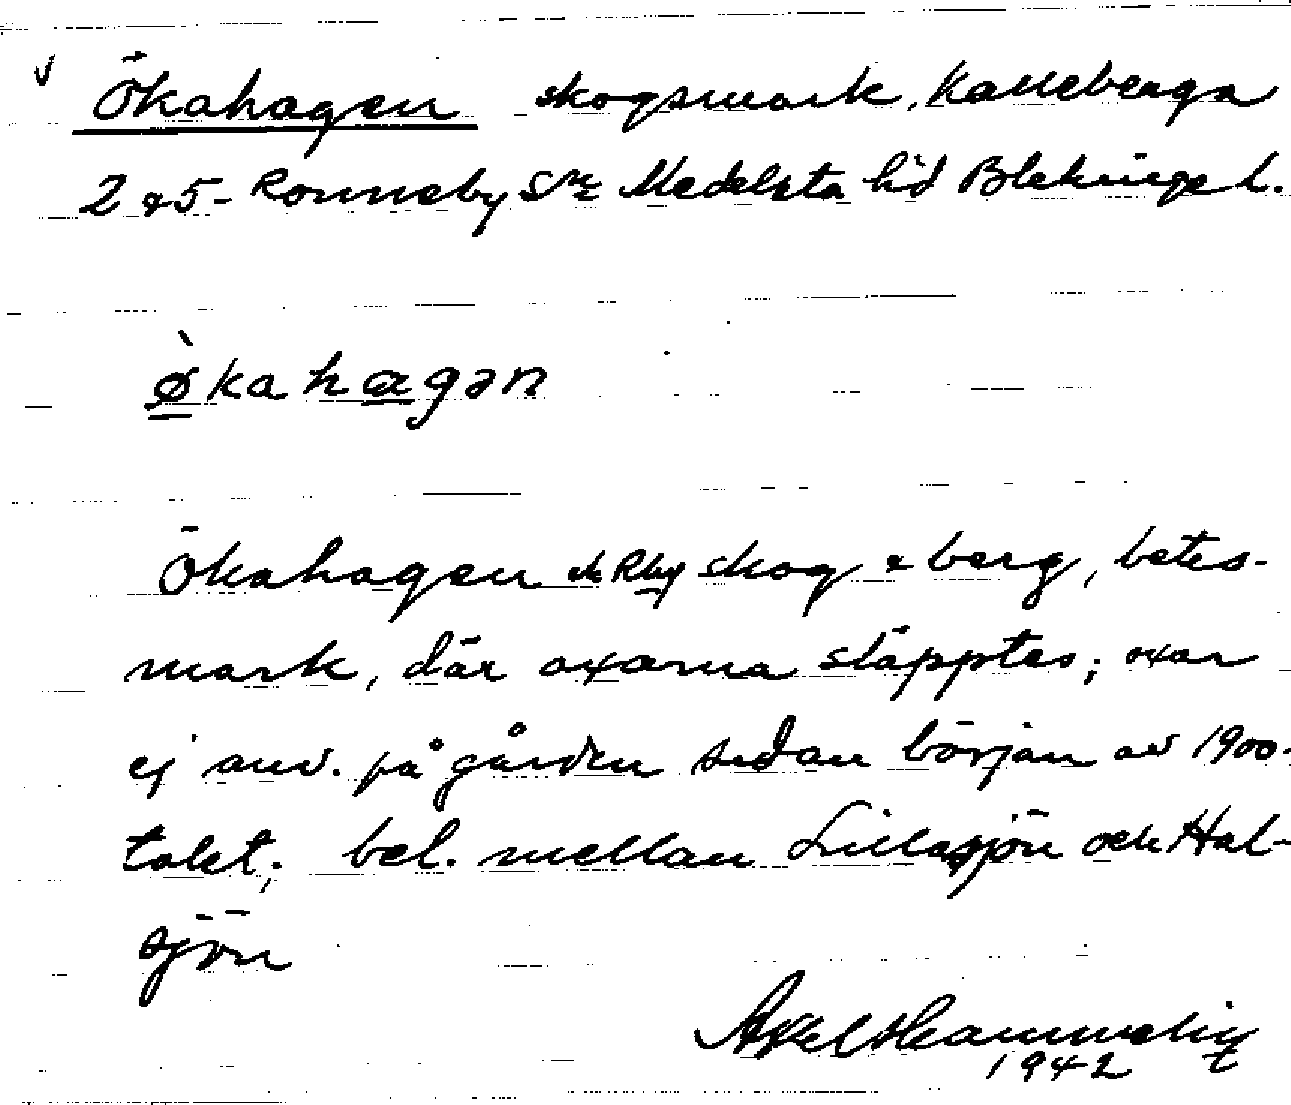 √ Ökahagen skogsmark, Kalleberga
2 & 5 - Ronneby sn Medelsta hd Blekinge l.
ø̀kahagən
Ökahagen skog & berg, betes-
mark, där oxarna släpptes; oxar
ej anv. på gården sedan början av 1900-
talet; bel. mellan Lillasjön och Hal-
sjön
Axel
1942